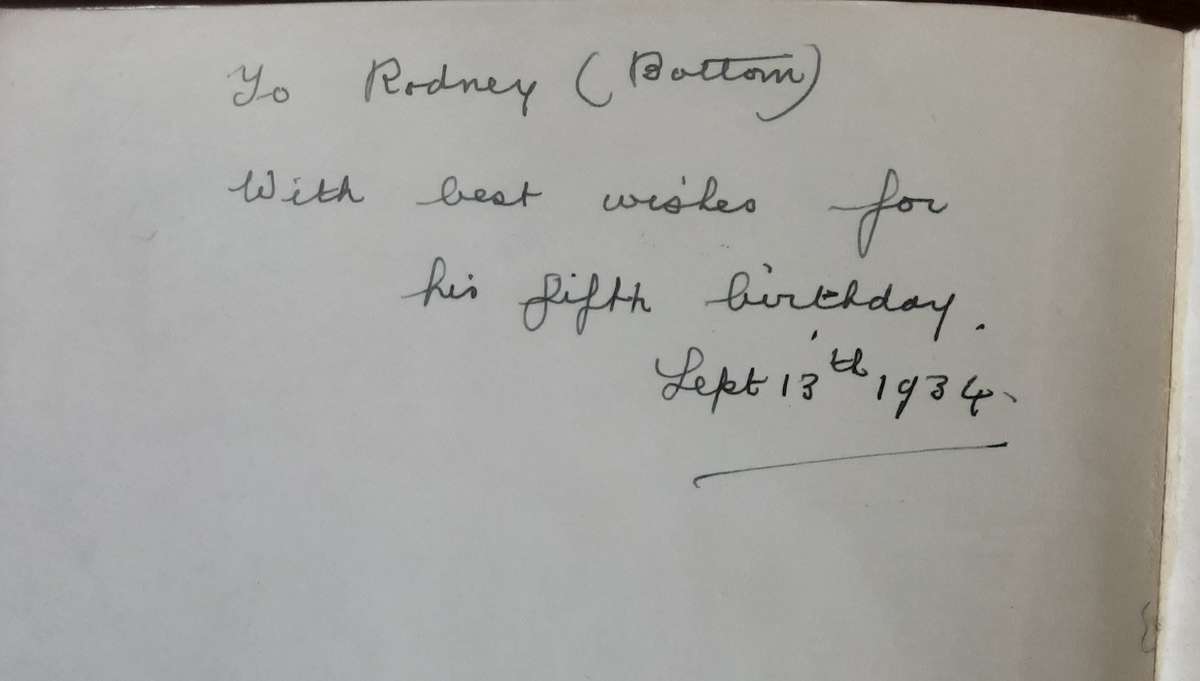 To Rodney (Bottom)
With best wishes for
his fifth birthday.
Sept 13th 1934.